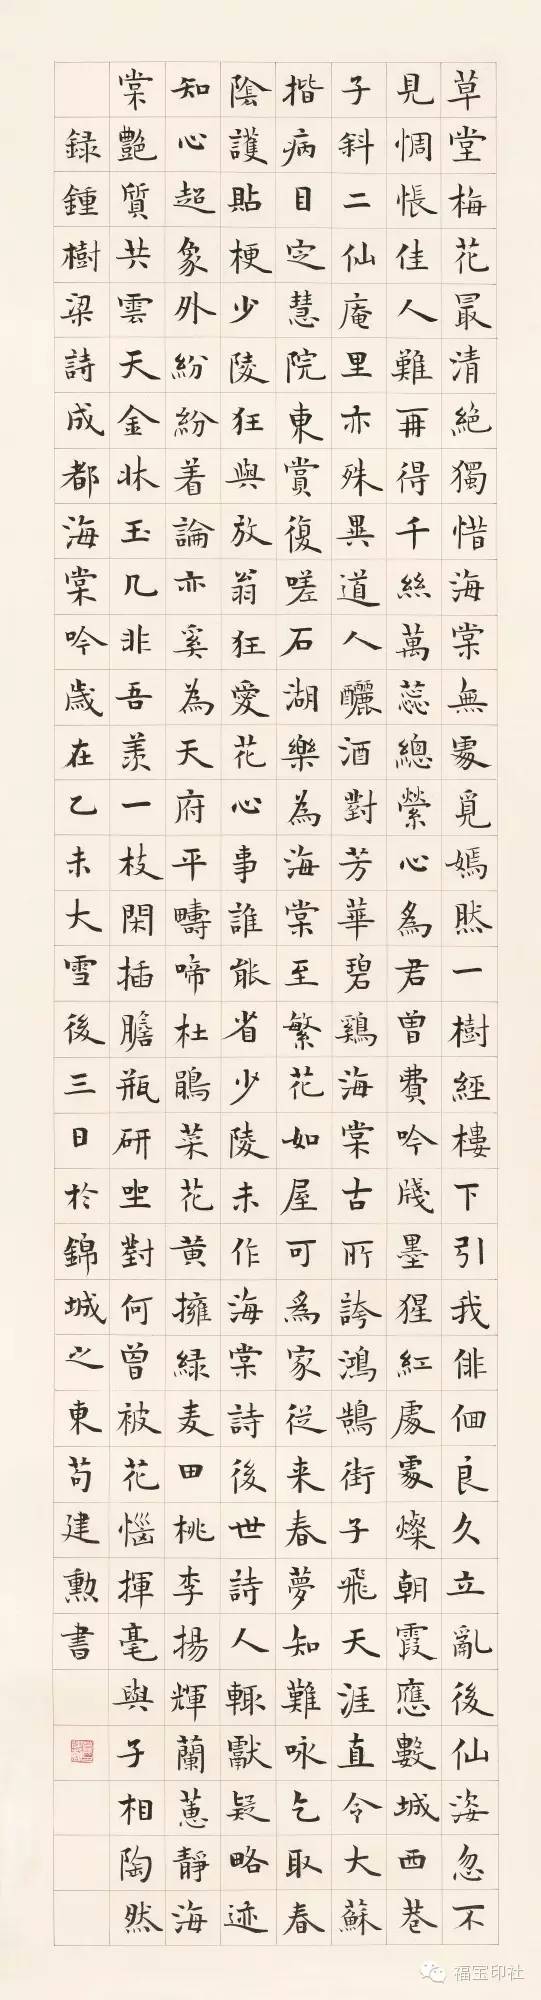 草堂梅花最清絶獨惜海棠無處覓嫣然一樹經樓下引我俳佪良久立亂後仙姿忽不
見惆悵佳人難再得千絲萬蕊總縈心為君曾費吟牋墨猩紅處處燦朝霞應數城西巷
子斜二仙庵里亦殊異道人釃酒對芳華碧鷄海棠古所誇鴻鵠街子飛天涯直令大蘇
揩病目定慧院東賞復嗟石湖樂為海棠至繁花如屋可為家從来春夢知難咏乞取春
陰護貼梗少陵狂與放翁狂愛花心事誰能省少陵未作海棠詩後世詩人輒獻疑略迹
知心超象外紛紛着論亦奚為天府平疇啼杜鵑菜花黄擁緑麦田桃李揚輝蘭蕙靜海
棠艷質共雲天金牀玉几非吾羨一枝閑插膽瓶研坐對何曾被花惱揮毫與子相陶然
録鍾樹梁詩成都海棠吟歲在乙未大雪後三日於錦城之東苟建勲書
福宝印社